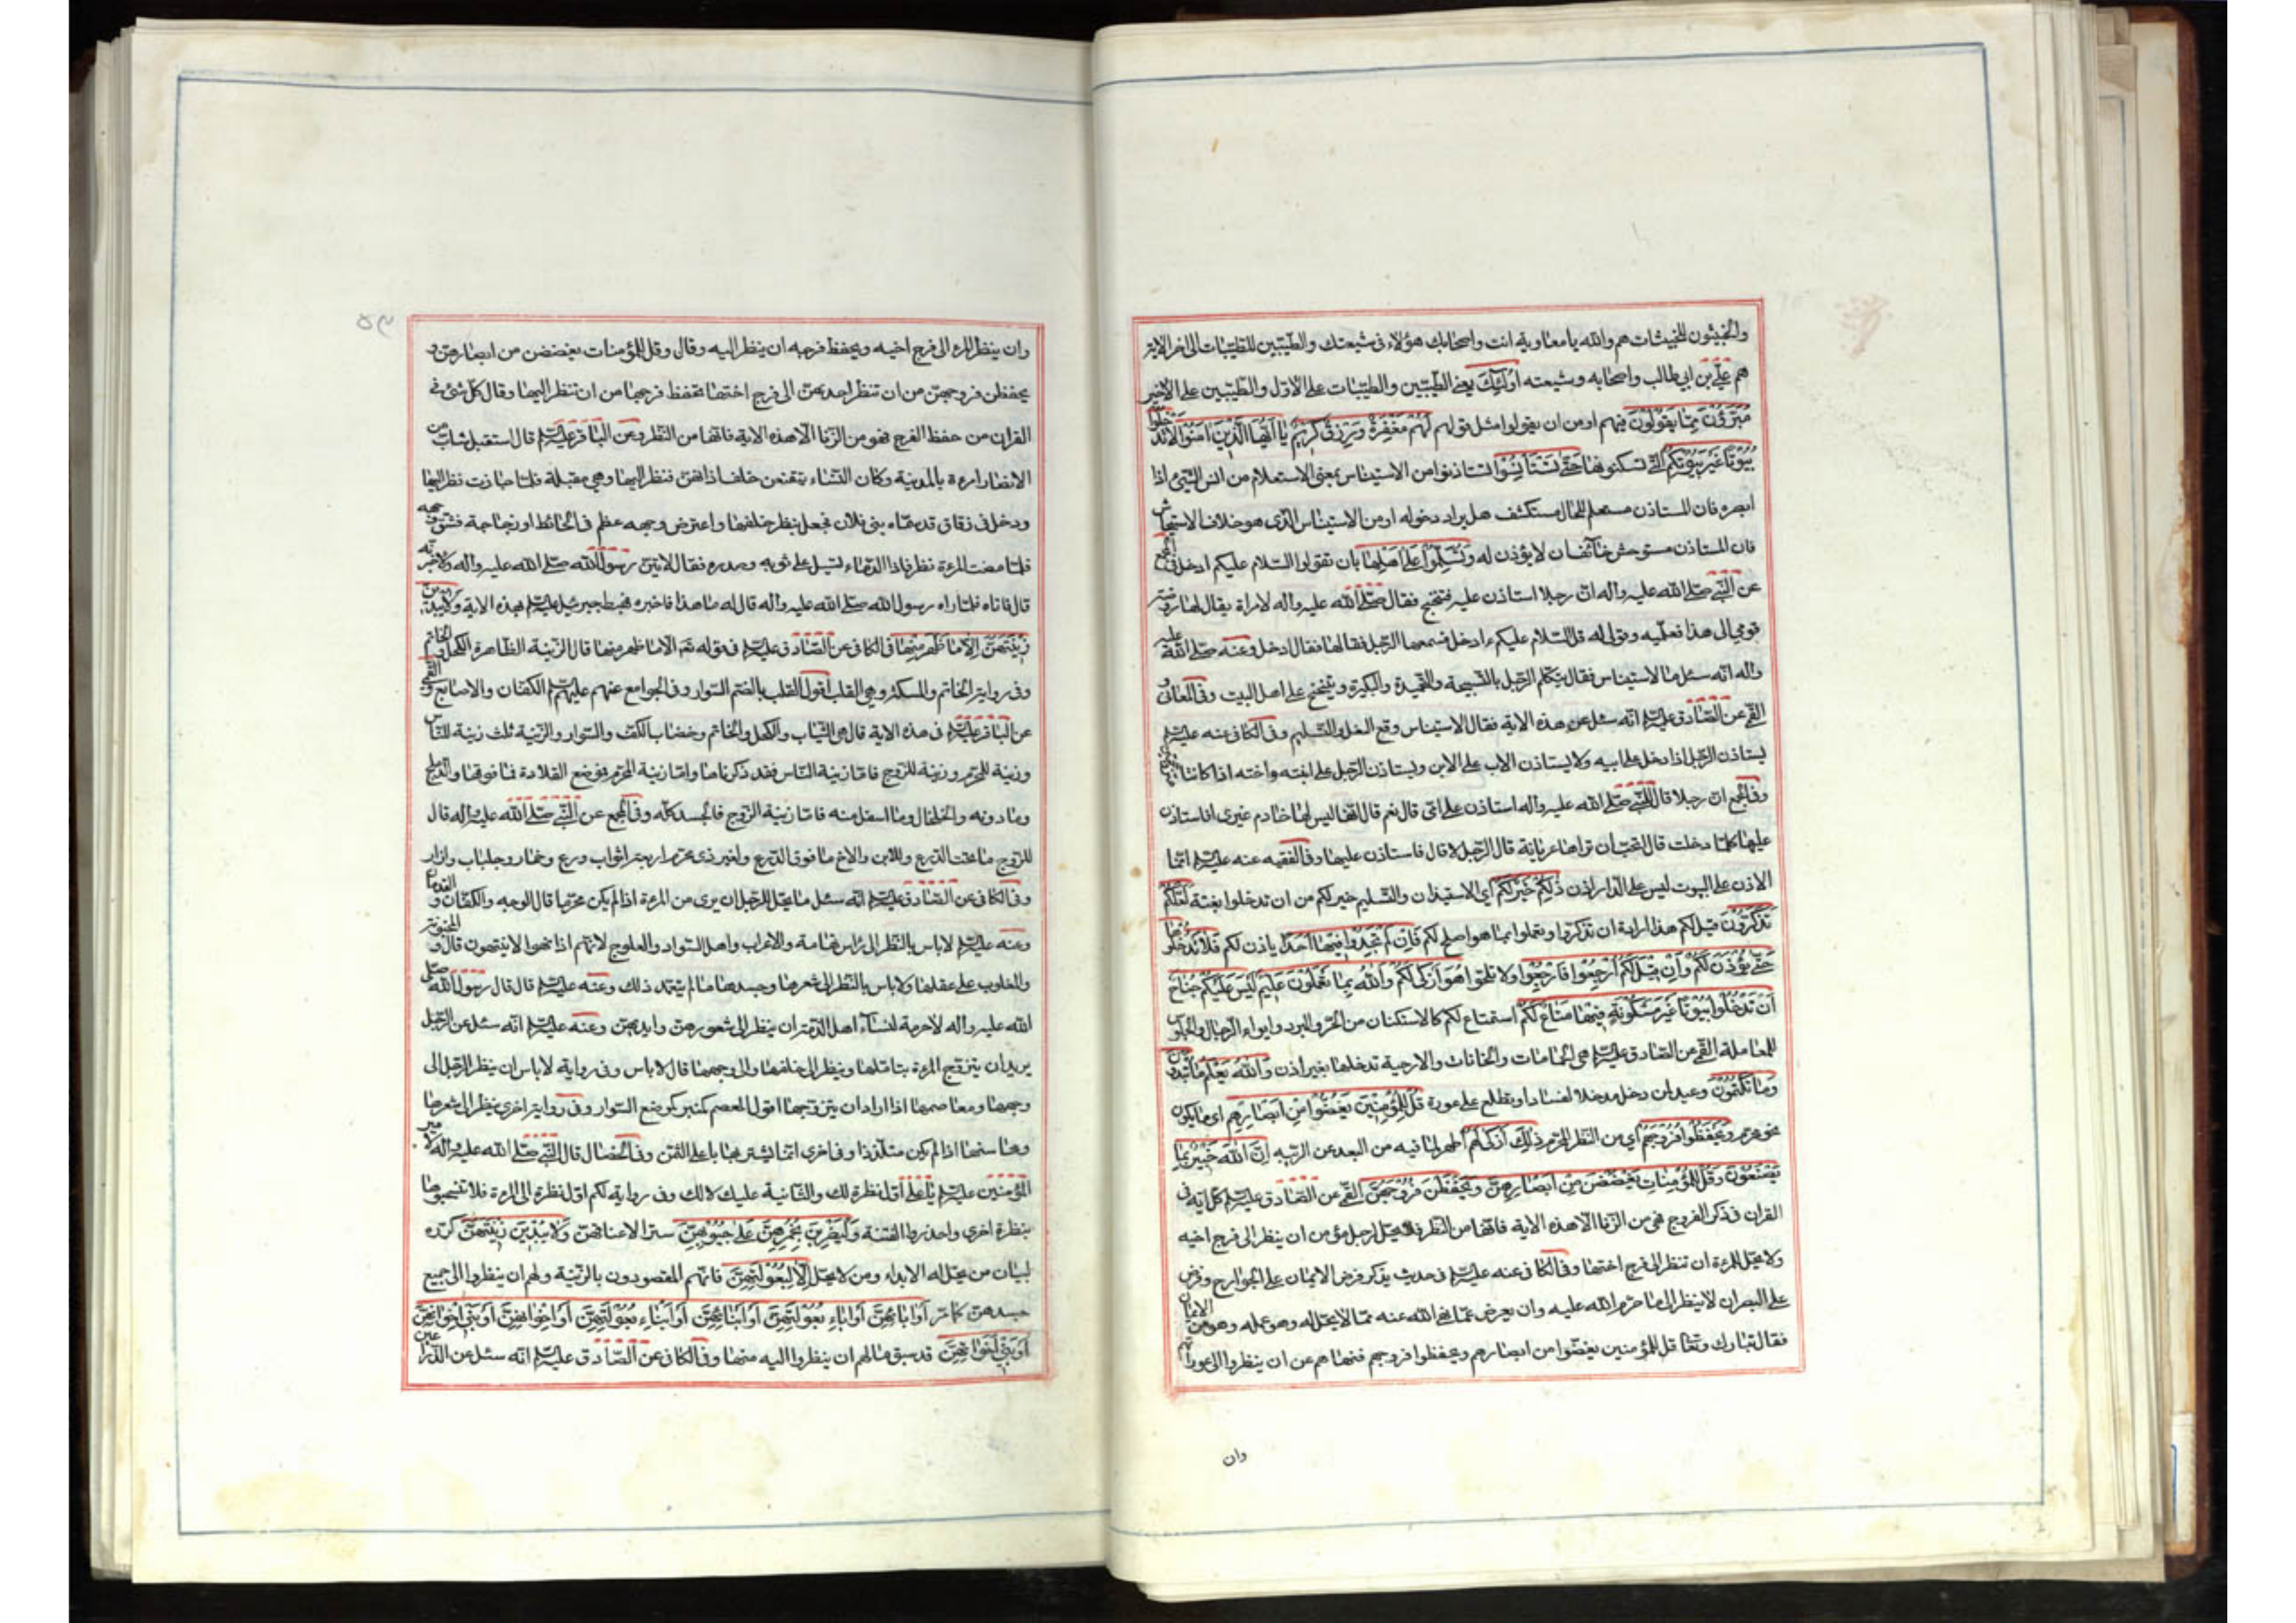 والخبيثون للخبيثات هم والله يا معاوية انت واصحابك هؤلاء فى شيعتك والطيبين للطيبات الى اخر الاية
هم على بن ابى طالب واصحابه وشيعته اُولٰئِكَ يعنى الطيبين والطيبات على الاول والطيبين على الاخير
مُبَرَّؤُنَ مِمّٰا يَقُولُونَ فيهم او من ان يقولوا مثل قولهم لَهُمْ مَغْفِرَةٌ وَرِزْقٌ كَرِيمٌ يٰا اَيُّهَا الَّذِينَ اٰمَنُوا لٰا تَدْخُلُوا
بُيُوتًا غَيْرَ بُيُوتِكُمْ التى تسكنونها حَتّٰى تَسْتَأْنِسُوا تستاذنوا من الاستيناس بمعنى الاستعلام من انس الشئ اذا
ابصره فان المستاذن مستعلم للحال مستكشف هل يراد دخوله او من الاستيناس الذى هو خلاف الاستيحاش
فان المستاذن مستوحش خائف ان لا يؤذن له وَتُسَلِّمُوا عَلٰى اَهْلِهٰا بان تقولوا السلام عليكم ادخل فى المجمع
عن النبى صلى الله عليه واله ان رجلا استاذن عليه فتنحنح فقال صلى الله عليه واله لامراة يقال لها روضة
قومى الى هذا فعلميه وقولى له قل السلام عليكم ءادخل فسمعها الرجل فقالها فقال ادخل وعنه صلى الله عليه
واله انه سئل ما الاستيناس فقال يتكلم الرجل بالتسبيحة والتحميدة والتكبيرة ويتنحنح على اهل البيت وفى المعانى و
القمى عن الصادق عليه السلم انه سئل عن هذه الاية فقال الاستيناس وقع النعل والتسليم وفى الكافى عنه عليه السلم
يستاذن الرجل اذا دخل على ابيه ولا يستاذن الاب على الابن ويستاذن الرجل على ابنته واخته اذا كانتا
وفى المجمع ان رجلا قال للنبى صلى الله عليه واله استاذن على امى قال نعم قال انها ليس لها خادم غيرى افاستاذن
عليها كلما دخلت قال اتحب ان تراها عريانة قال الرجل لا قال فاستاذن عليها وفى الفقيه عنه عليه السلم انما
الاذن على البيوت ليس على الدار اذن ذٰلِكُمْ خَيْرٌ لَكُمْ اى الاستيذان والتسليم خير لكم من ان تدخلوا بغتة لَعَلَّكُمْ
تَذَكَّرُونَ قيل لكم هذا ارادة ان تذكروا وتعملوا بما هو اصلح لكم فَاِنْ لَمْ تَجِدُوا فِيهٰا اَحَدًا ياذن لكم فَلٰا تَدْخُلُوهٰا
حَتّٰى يُؤْذَنَ لَكُمْ وَاِنْ قِيلَ لَكُمُ ارْجِعُوا فَارْجِعُوا ولا تلحوا هُوَ اَزْكٰى لَكُمْ وَاللّٰهُ بِمٰا تَعْمَلُونَ عَلِيمٌ لَيْسَ عَلَيْكُمْ جُنٰاحٌ
اَنْ تَدْخُلُوا بُيُوتًا غَيْرَ مَسْكُونَةٍ فِيهٰا مَتٰاعٌ لَكُمْ استمتاع لكم كالاستكنان من الحر والبرد وايواء الرحال والجلوس
للمعاملة القمى عن الصادق عليه السلم هى الحمامات والخانات والارحية تدخلها بغير اذن وَاللّٰهُ يَعْلَمُ مٰا تُبْدُونَ
وَمٰا تَكْتُمُونَ وعيد لمن دخل مدخلا لفساد او تطلع على عورة قُلْ لِلْمُؤْمِنِينَ يَغُضُّوا مِنْ اَبْصٰارِهِمْ اى ما يكون
نحو محرم وَيَحْفَظُوا فُرُوجَهُمْ اى من النظر المحرم ذٰلِكَ اَزْكٰى لَهُمْ اطهر لما فيه من البعد عن الريبة اِنَّ اللّٰهَ خَبِيرٌ بِمٰا
يَصْنَعُونَ وَقُلْ لِلْمُؤْمِنٰاتِ يَغْضُضْنَ مِنْ اَبْصٰارِهِنَّ وَيَحْفَظْنَ فُرُوجَهُنَّ القمى عن الصادق عليه السلم كل اية فى
القران فى ذكر الفروج فهى من الزنا الا هذه الاية فانها من النظر فلا يحل لرجل مؤمن ان ينظر الى فرج اخيه
ولا يحل للمرءة ان تنظر الى فرج اختها وفى الكافى عنه عليه السلم فى حديث يذكر فرض الايمان على الجوارح وفرض
على البصر ان لا ينظر الى ما حرم الله عليه وان يعرض عما نهى الله عنه مما لا يحل له وهو عمله وهو من الايمان
فقال تبارك وتعا قل للمؤمنين يغضوا من ابصارهم ويحفظوا فروجهم فنهاهم عن ان ينظروا الى عوراتهم
وان
وان ينظر المرء الى فرج اخيه ويحفظ فرجه ان ينظر اليه وقال وقل للمؤمنات يغضضن من ابصارهن و
يحفظن فروجهن من ان تنظر احديهن الى فرج اختها تحفظ فرجها من ان تنظر اليها وقال كل شئ فى
القران من حفظ الفرج فهو من الزنا الا هذه الاية فانها من النظر وعن الباقر عليه السلم قال استقبل شاب من
الانصار امرءة بالمدينة وكان النساء يتقنعن خلف اذانهن فنظر اليها وهى مقبلة فلما جازت نظر اليها
ودخل فى زقاق قد سماه بنى فلان فجعل ينظر خلفها واعترض وجهه عظم فى الحائط او زجاجة فشق وجهه
فلما مضت المرءة نظر فاذا الدماء تسيل على ثوبه وصدره فقال لاتين رسول الله صلى الله عليه واله ولاخبرنه
قال فاتاه فلما راه رسول الله صلى الله عليه واله قال له ما هذا فاخبره فهبط جبرئيل عليه السلم بهذه الاية وَلٰا يُبْدِينَ
زِينَتَهُنَّ اِلّٰا مٰا ظَهَرَ مِنْهٰا فى الكافى عن الصادق عليه السلم فى قوله تعا الا ما ظهر منها قال الزينة الظاهرة الكحل والخاتم
وفى رواية الخاتم والمسكة وهى القلب اقول القلب بالضم السوار وفى الجوامع عنهم عليهم السلم الكفان والاصابع والقمى
عن الباقر عليه السلم فى هذه الاية قال هى الثياب والكحل والخاتم وخضاب الكف والسوار والزينة ثلث زينة للناس
وزينة للمحرم وزينة للزوج فاما زينة الناس فقد ذكرناها واما زينة المحرم فموضع القلادة فما فوقها والدملج
وما دونه والخلخال وما اسفل منه فاما زينة الزوج فالجسد كله وفى المجمع عن النبى صلى الله عليه واله قال
للزوج ما تحت الدرع وللابن والاخ ما فوق الدرع ولغير ذى محرم اربعة اثواب درع وخمار وجلباب وازار
وفى الكافى عن الصادق عليه السلم انه سئل ما يحل للرجل ان يرى من المرءة اذا لم يكن محرما قال الوجه والكفان والقدمان
وعنه عليه السلم لا باس بالنظر الى راس تهامة والاعراب واهل السواد والعلوج لانهم اذا نهوا لا ينتهون قال والمجنونة
والمغلوب على عقلها ولا باس بالنظر الى شعرها وجسدها ما لم يتعمد ذلك وعنه عليه السلم قال قال رسول الله صلى
الله عليه واله لا حرمة لنساء اهل الذمة ان ينظر الى شعورهن وايديهن وعنه عليه السلم انه سئل عن الرجل
يريد ان يتزوج المرءة يتاملها وينظر الى خلفها والى وجهها قال لا باس وفى رواية لا باس ان ينظر الرجل الى
وجهها ومعاصمها اذا اراد ان يتزوجها اقول المعصم كمنبر موضع السوار وفى رواية اخرى ينظر الى شعرها
ومحاسنها اذا لم يكن متلذذا وفى اخرى انما يشتريها باغلى الثمن وفى الخصال قال النبى صلى الله عليه واله لامير
المؤمنين عليه السلم يا على اول نظرة لك والثانية عليك لا لك وفى رواية لكم اول نظرة الى المرءة فلا تتبعوها
بنظرة اخرى واحذروا الفتنة وَلْيَضْرِبْنَ بِخُمُرِهِنَّ عَلٰى جُيُوبِهِنَّ سترا لاعناقهن وَلٰا يُبْدِينَ زِينَتَهُنَّ كرره
لبيان من يحل له الابداء ومن لا يحل اِلّٰا لِبُعُولَتِهِنَّ فانهم المقصودون بالزينة ولهم ان ينظروا الى جميع
جسدهن كما مر اَوْ اٰبٰائِهِنَّ اَوْ اٰبٰاءِ بُعُولَتِهِنَّ اَوْ اَبْنٰائِهِنَّ اَوْ اَبْنٰاءِ بُعُولَتِهِنَّ اَوْ اِخْوٰانِهِنَّ اَوْ بَنِى اِخْوٰانِهِنَّ
اَوْ بَنِى اَخَوٰاتِهِنَّ قد سبق ما لهم ان ينظروا اليه منها وفى الكافى عن الصادق عليه السلم انه سئل عن الذراعين